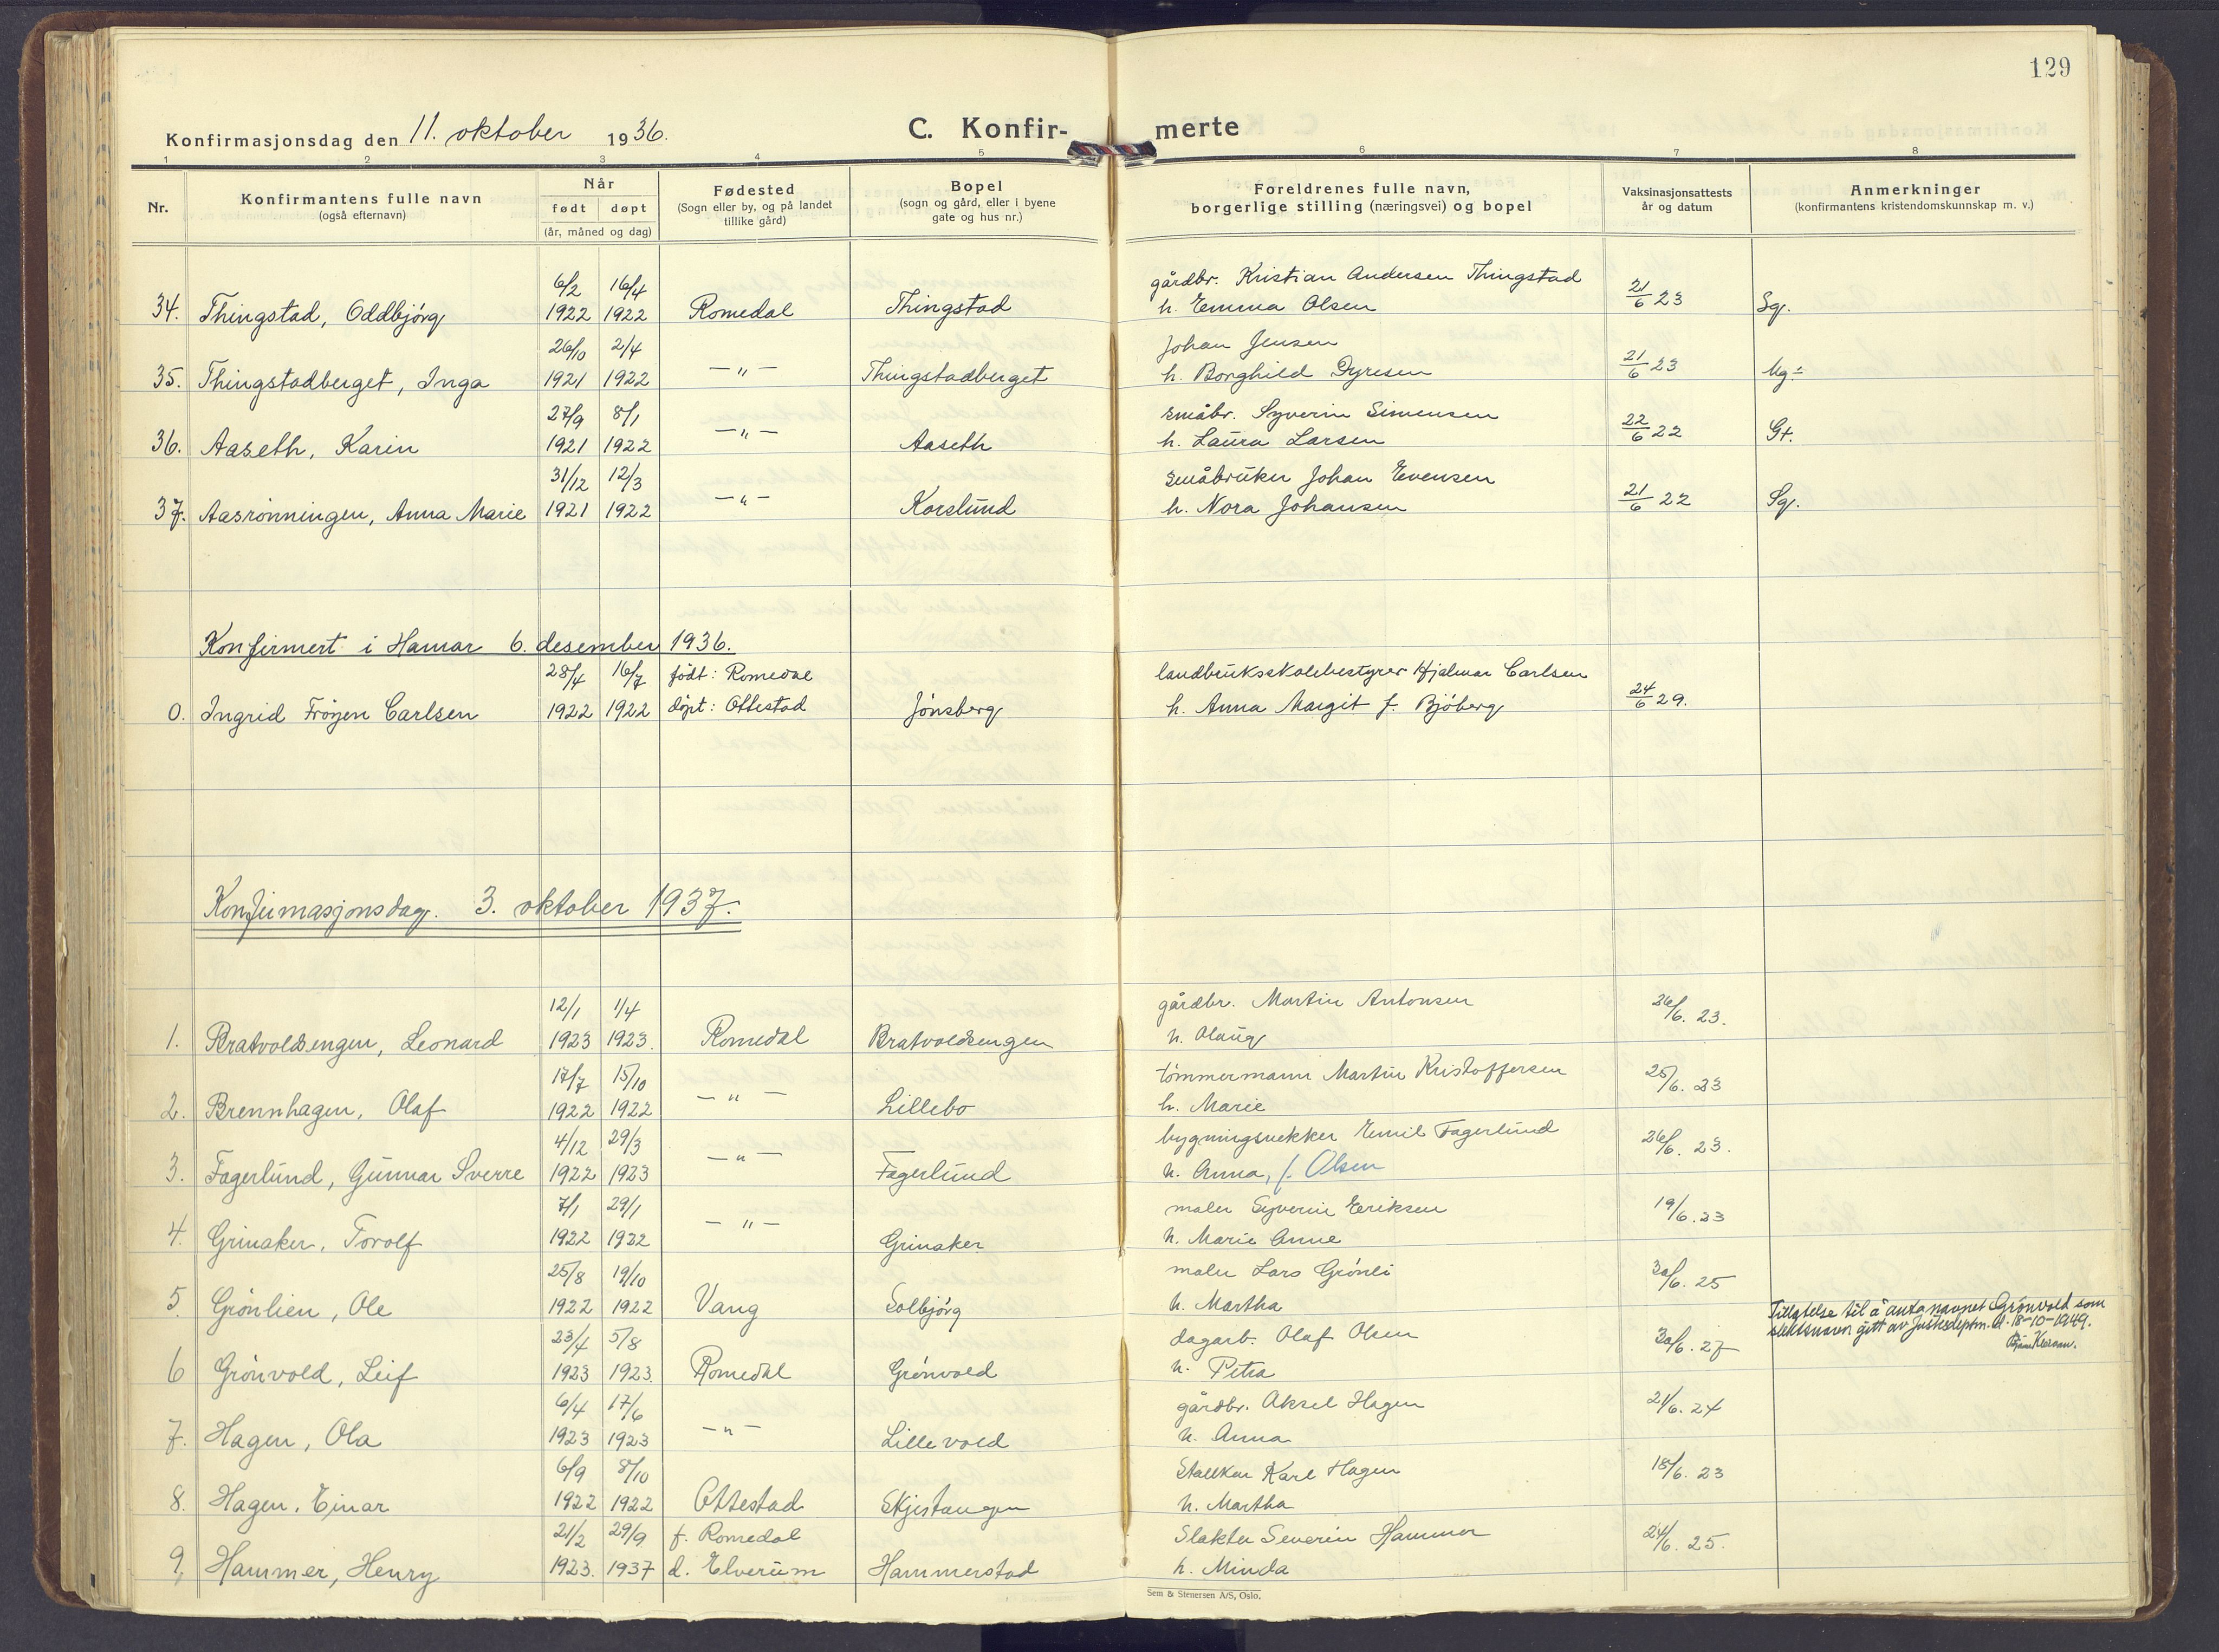 129
Konfirmasjonsdag den 11. oktober 1936.
C. Konfir- merte
1 2 3 4 5 6 7 8
Nr.
Konfirmantens fulle navn
(også efternavn)
Når
født døpt
(år, måned og dag)
Fødested
(Sogn eller by, og på landet
tillike gård)
Bopel
(sogn og gård, eller i byene
gate og hus nr.)
Foreldrenes fulle navn,
borgerlige stilling (næringsvei) og bopel
Vaksinasjonsattests
år og datum
Anmerkninger
(konfirmantens kristendomskunnskap m. v.)
6/2 16/4 gårdbr. Kristian Andersen Thingstad
34. Thingstad, Oddbjörg 1922 1922 Romedal Thingstad h. Emma Olsen 21/6 23 Sg.
26/10 2/4 Johan Jensen
35. Thingstadberget, Inga 1921 1922 —"— Thingstadberget h. Borghild Dyresen 21/6 23 Mg ÷
27/9 8/1 småbr. Syverin Simensen
36. Aaseth, Karin 1921 1922 —"— Aaseth h. Laura Larsen 22/6 22 Gt.
31/12 12/3 småbruker Johan Evensen
37. Aasrönningen, Anna Marie 1921 1922 —"— Korslund h. Nora Johansen 21/6 22 Sg.
Konfirmert i Hamar 6. desember 1936.
28/4 16/7 födt: Romedal landbruksskolebestyrer Hjalmar Carlsen
0. Ingrid Fröyen Carlsen 1922 1922 döpt: Ottestad Jönsberg h. Anna Margit f. Bjöberg 24/6 29.
Konfirmasjonsdag. 3. oktober 1937.
12/1 1/4 gårdbr. Martin Antonsen
1. Bratvoldsengen, Leonard 1923 1923. Romedal Bratvoldsengen h. Olaug 26/6. 23.
17/7 15/10 tömmermann Martin Kristoffersen
2. Brennhagen, Olaf 1922 1922 —"— Lillebo h. Marie 25/6. 23
4/12 29/3 bygningsnekker Emil Fagerlund
3. Fagerlund, Gunnar Sverre 1922 1923 —"— Fagerlund h. Anna, f. Olsen 26/6. 23.
7/1 29/1 maler Syverin Eriksen
4. Grinaker, Torolf 1922 1922 —"— Grinaker h. Marie Anne 19/6. 23
25/8 19/10 maler Lars Grönli
5. Grönlien, Ole 1922 1922 Vang Solbjörg h. Martha 30/6. 25
Tillatelse til å anta navnet Grönvold som
slektsnavn gitt av Justisdeptm. d. 18-10-1949.
23/4 5/8 dagarb. Olaf Olsen
6 Grönvold, Leif 1923 1923. Romedal Grönvold h. Petra 30/6. 27
6/4 17/6 gårdbr. Aksel Hagen
7. Hagen, Ola 1923 1923 —"— Lillevold h. Anna 21/6. 24
6/9 8/10 Stallkar Karl Hagen
8. Hagen, Einar 1922 1922 Ottestad Skjestangen h. Martha 18/6. 23
21/2 29/9 f. Romedal Slakter Severin Hammer
9, Hammer, Henry 1923. 1937 d. Elverum Hammerstad h. Minda 24/6. 25.
Sem & Stenersen A/S, Oslo.